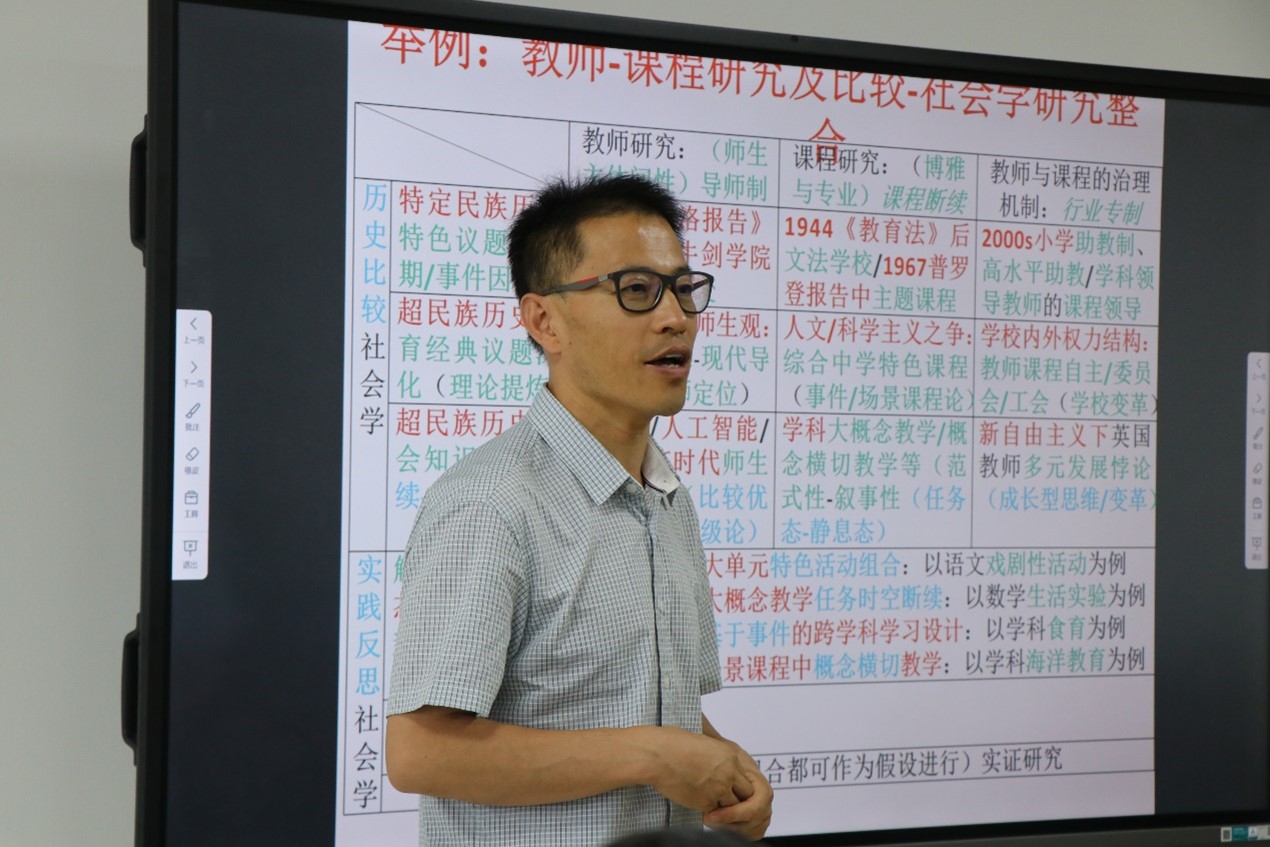 举例：教师-课程研究及比较-社会学研究整
合
教师研究：（师生
主体间性）导师制
课程研究：（博雅
与专业）课程断续
教师与课程的治理
机制：行业专制
历史比较社会学
特定民族历
特色议题
期/事件因
格报告》
牛剑学院
1944《教育法》后
文法学校/1967普罗
登报告中主题课程
2000s小学助教制、
高水平助教/学科领
导教师的课程领导
超民族历史
育经典议题
化（理论提炼
师生观：
-现代导
师定位）
人文/科学主义之争：
综合中学特色课程
（事件/场景课程论）
学校内外权力结构：
教师课程自主/委员
会/工会（学校变革）
超民族历史
会知识
续
/人工智能/
时代师生
比较优
级论）
学科大概念教学/概
念横切教学等（范
式性-叙事性（任务
态-静息态）
新自由主义下英国
教师多元发展悖论
（成长型思维/变革）
实践反思社会学
大单元特色活动组合：以语文戏剧性活动为例
大概念教学任务时空断续：以数学生活实验为例
基于事件的跨学科学习设计：以学科食育为例
景课程中概念横切教学：以学科海洋教育为例
合都可作为假设进行）实证研究
上一页
下一页
批注
工具
退出